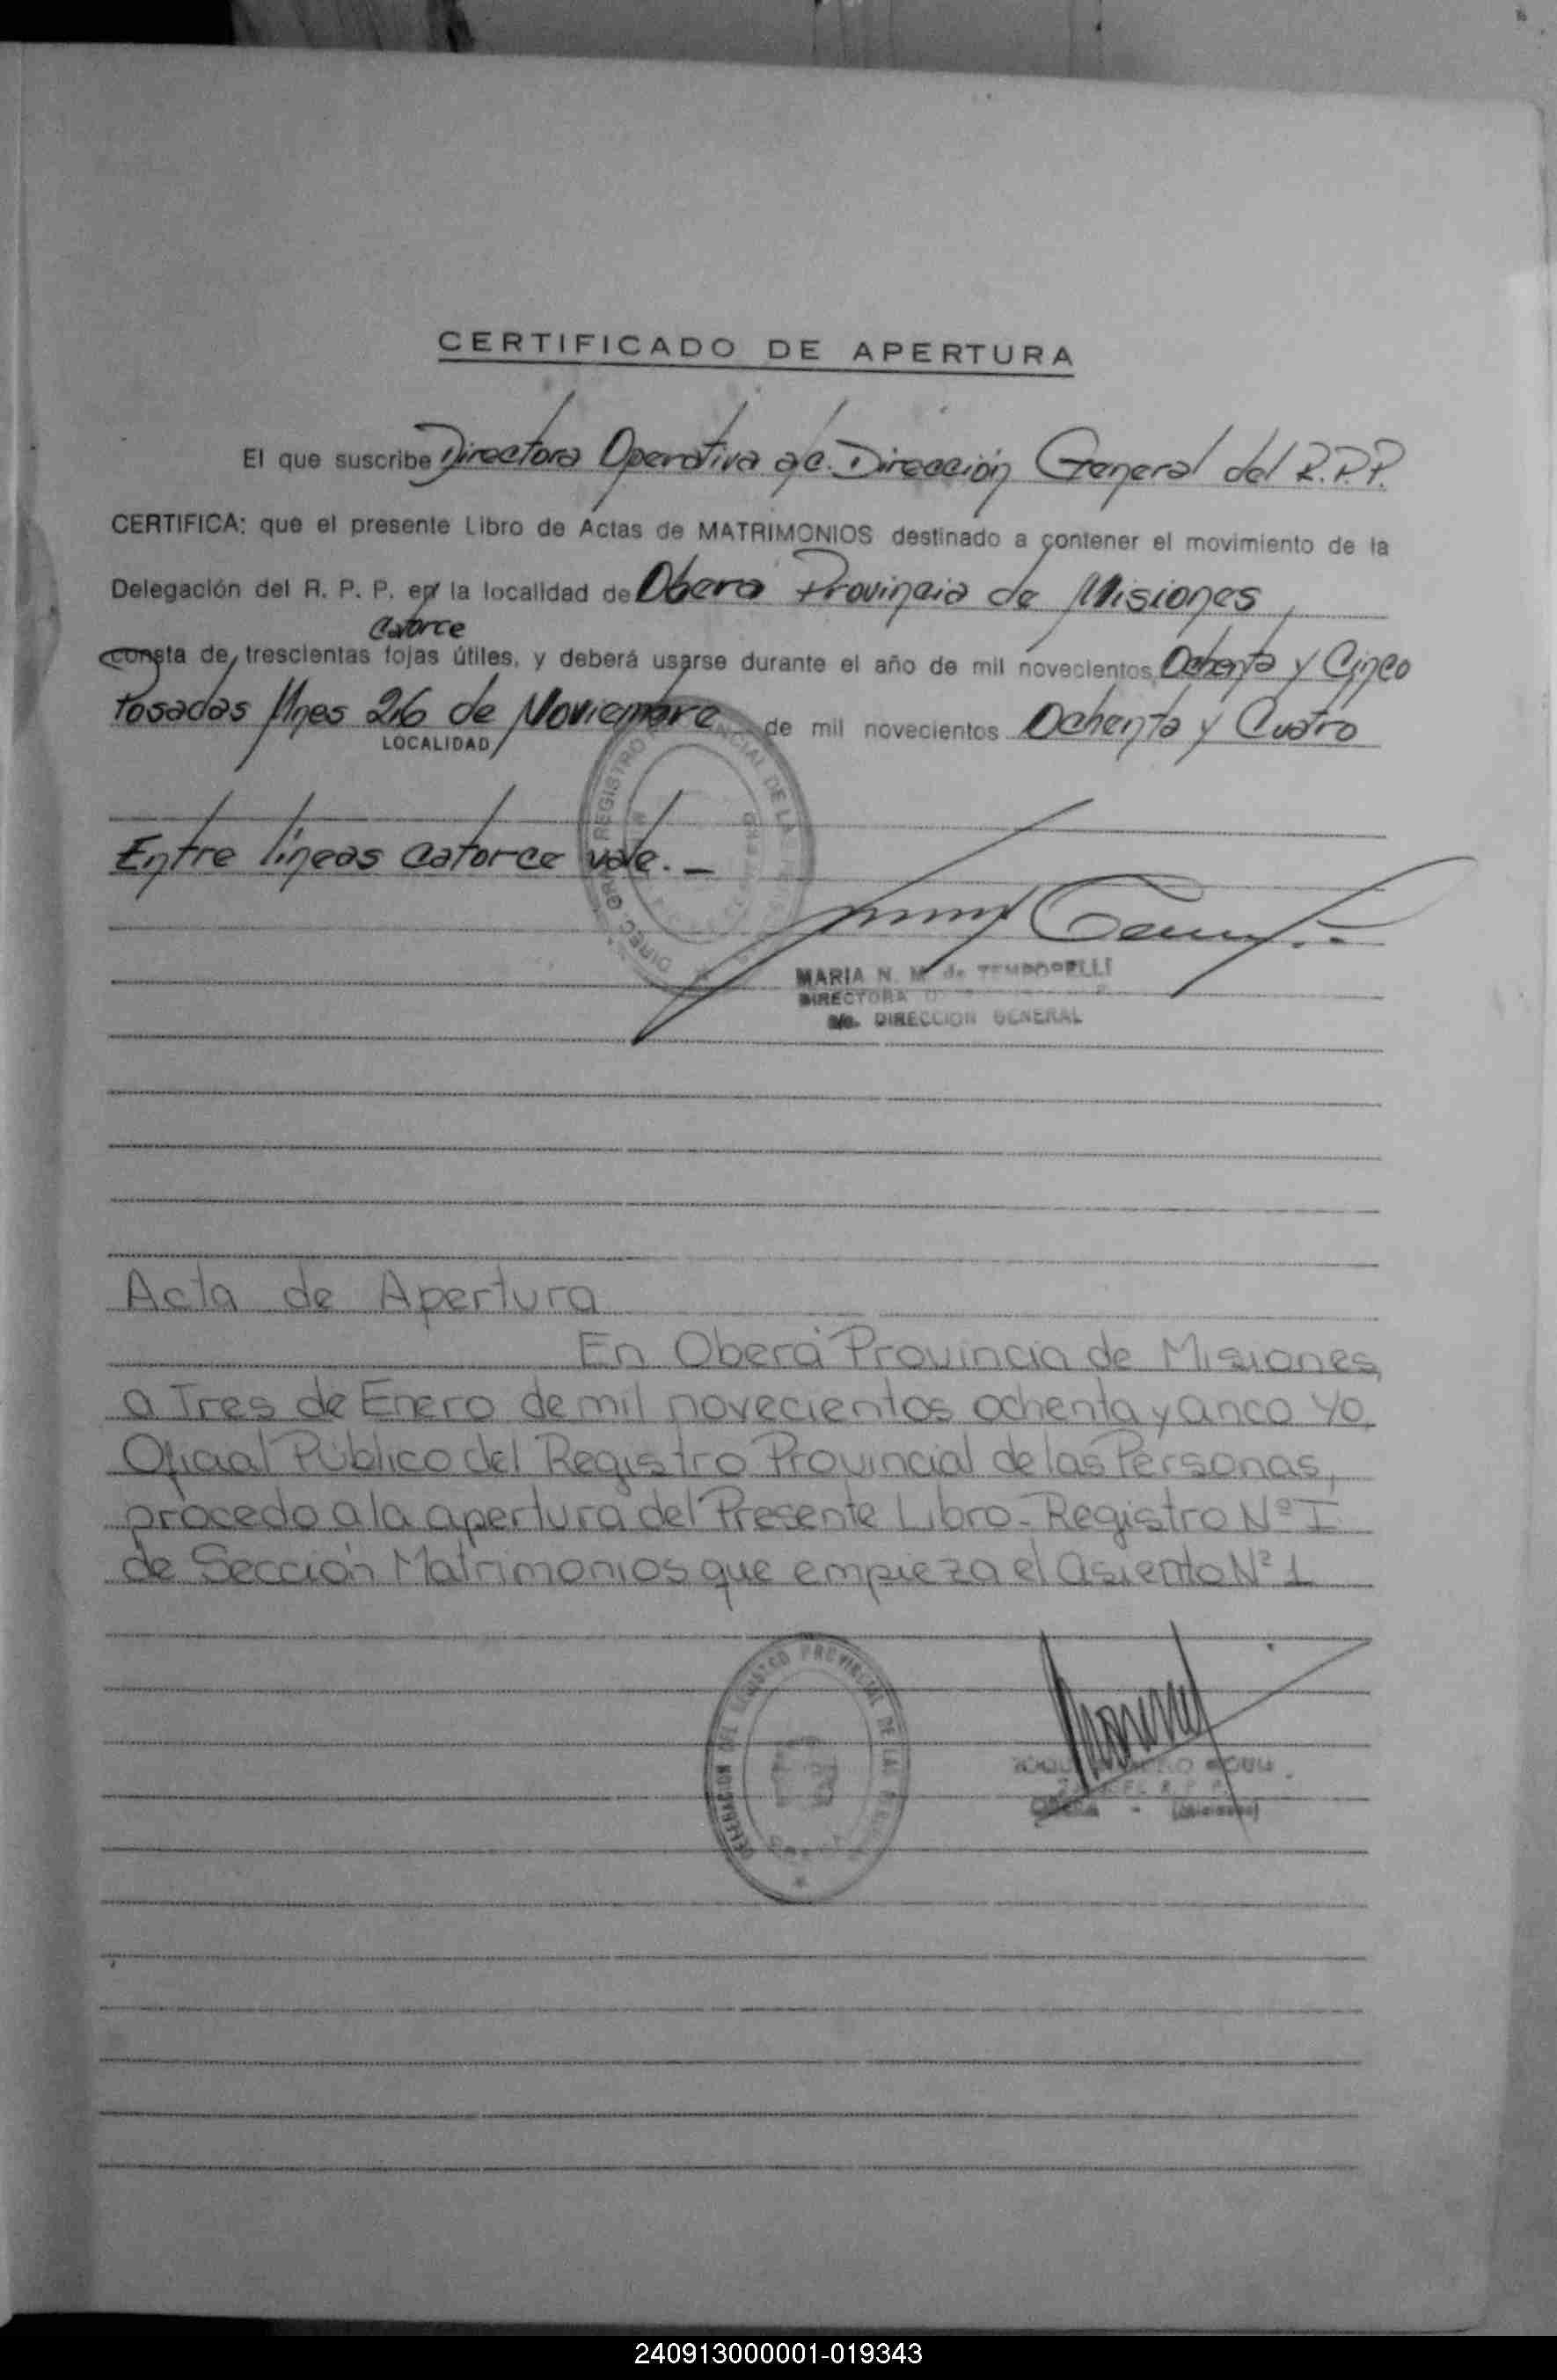 CERTIFICADO DE APERTURA
El que suscribe Directora Operativa a/c. Dirección General del R.P.P.
CERTIFICA: que el presente Libro de Actas de MATRIMONIOS destinado a contener el movimiento de la
Delegación del R. P. P. en la localidad de Obera Provincia de Misiones
Catorce
consta de trescientas fojas útiles, y deberá usarse durante el año de mil novecientos Ochenta y Cinco
Posadas Mnes 26 de Noviembre de mil novecientos Ochenta y Cuatro
LOCALIDAD
Entre líneas catorce vale.-
MARIA N. M. de TEMPORELLI
DIRECTORA
a/c. DIRECCION GENERAL
Acta de Apertura
En Oberá Provincia de Misiones,
a Tres de Enero de mil novecientos ochenta y cinco yo,
Oficial Público del Registro Provincial de las Personas,
procedo a la apertura del Presente Libro-Registro Nº I
de Sección Matrimonios que empieza el asiento Nº 1
DELEGACION DEL REGISTRO PROVINCIAL DE LAS
OBERA - (Misiones)
240913000001-019343